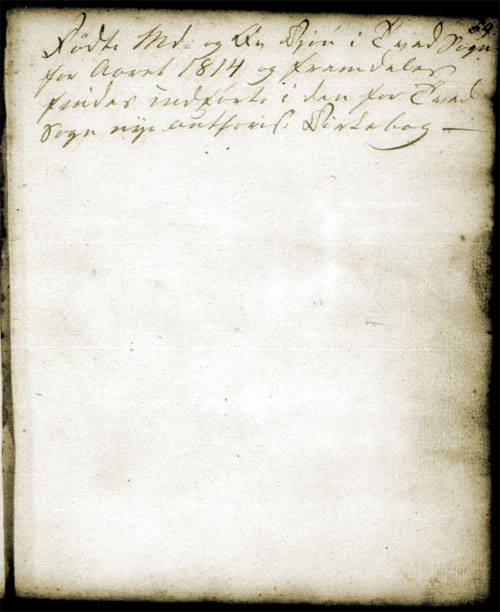 Födte Md: og Qv: Kjön i Tved Sogn
for Aaret 1814 og fremdeles
findes indförte i den for Tved
Sogn nye authoris: Kirkebog —